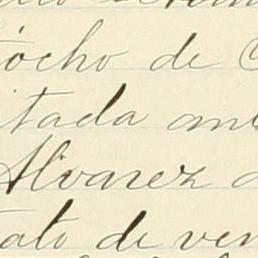 ócho de
itada an
Alvarez
tato de ven